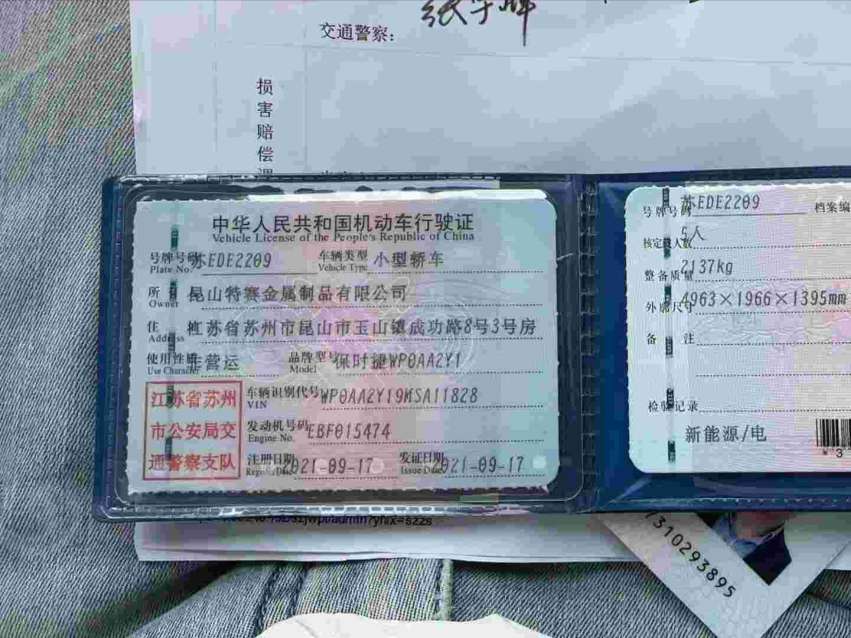 交通警察:
损害赔偿
中华人民共和国机动车行驶证
Vehicle License of the People's Republic of China
号牌号码 苏EDE2209 车辆类型 小型轿车
Plate No. Vehicle Type
所 人 昆山特赛金属制品有限公司
Owner
住 址 江苏省苏州市昆山市玉山镇成功路8号3号房
Address
使用性质 非营运 品牌型号 保时捷WP0AA2Y1
Use Character Model
江苏省苏州
市公安局交
通警察支队
车辆识别代号 WP0AA2Y19MSA11828
VIN
发动机号码 EBF015474
Engine No.
注册日期 2021-09-17 发证日期 2021-09-17
Register Date Issue Date
号牌号码 苏EDE2209 档案编
核定载人数 5人
整备质量 2137kg
外廓尺寸 4963×1966×1395mm
备 注
检验记录
新能源/电
7310293895